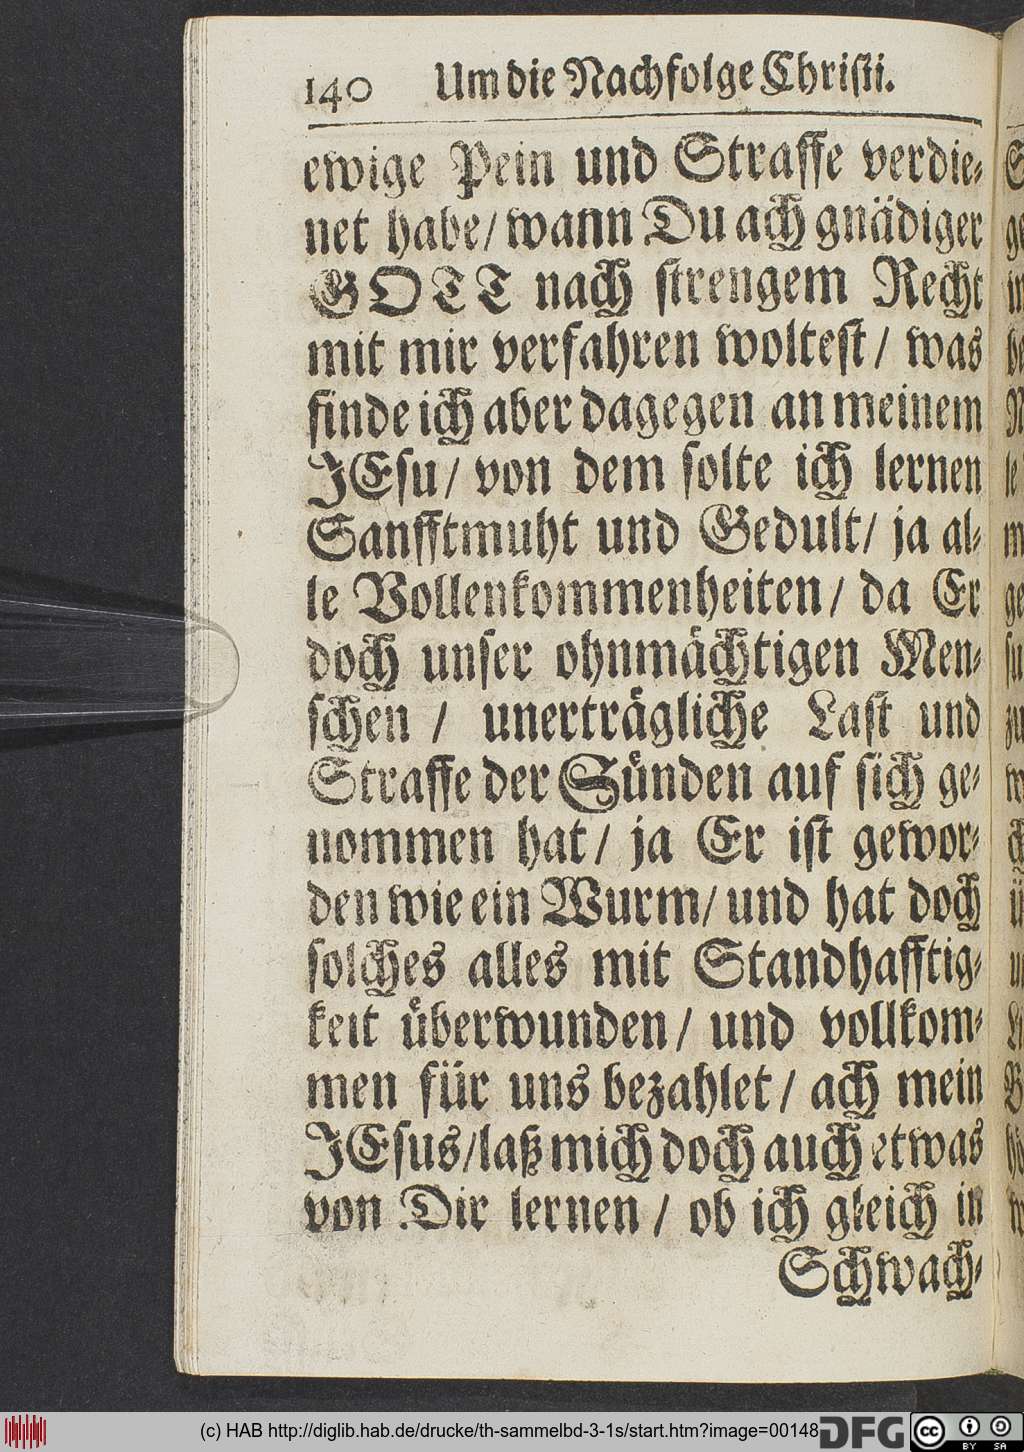 140 Um die Nachfolge Christi.
ewige Pein und Straffe verdie-
net habe/ wann Du ach gnädiger
GOTT nach strengem Recht
mit mir verfahren woltest/ was
finde ich aber dagegen an meinem
JEsu/ von dem solte ich lernen
Sanfftmuht und Gedult/ ja al-
le Vollenkommenheiten/ da Er
doch unser ohnmächtigen Men-
schen / unerträgliche Last und
Straffe der Sünden auf sich ge-
nommen hat/ ja Er ist gewor-
den wie ein Wurm/ und hat doch
solches alles mit Standhafftig-
keit überwunden/ und vollkom-
men für uns bezahlet/ ach mein
JEsus/ laß mich doch auch etwas
von Dir lernen / ob ich gleich in
Schwach-
(c) HAB http://diglib.hab.de/drucke/th-sammelbd-3-1s/start.htm?image=00148
DFG
cc BY SA